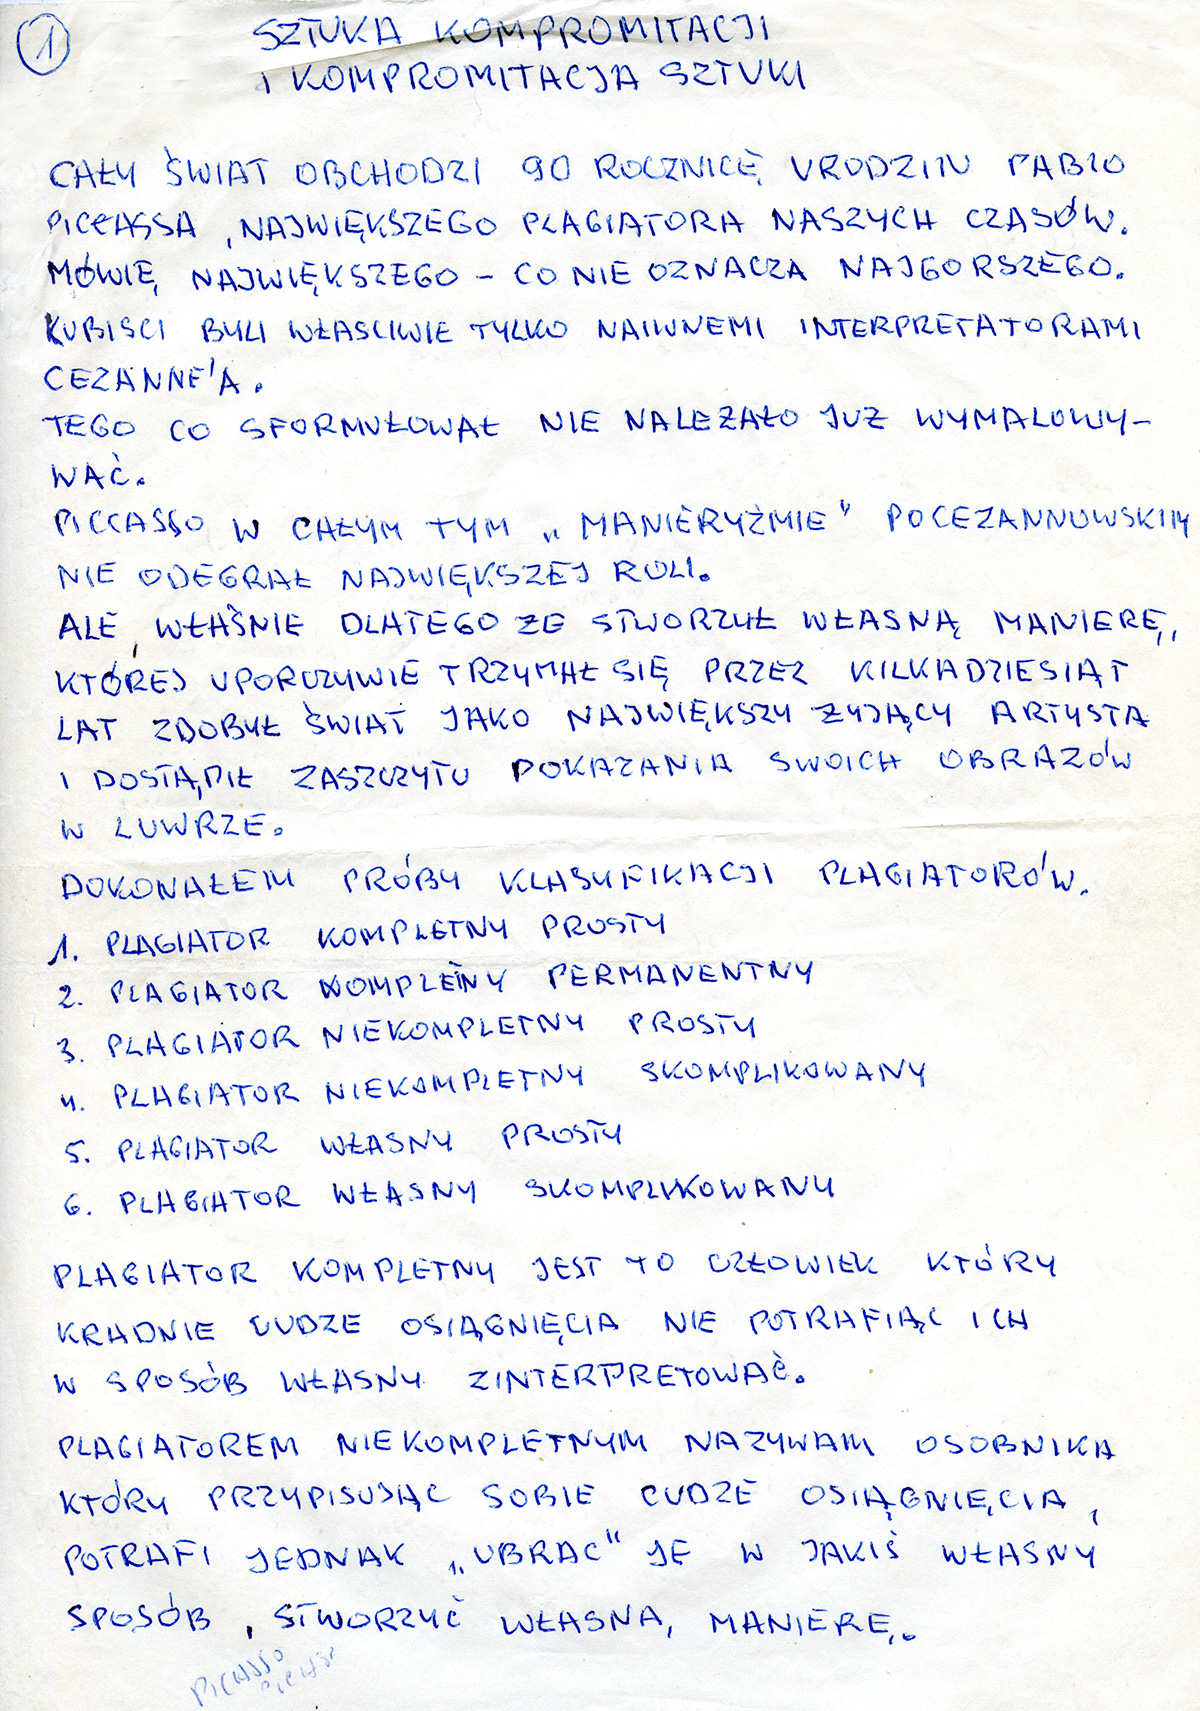 1
SZTUKA KOMPROMITACJI
I KOMPROMITACJA SZTUKI
CAŁY ŚWIAT OBCHODZI 90 ROCZNICĘ URODZIN PABLO
PICCASSA, NAJWIĘKSZEGO PLAGIATORA NASZYCH CZASÓW.
MÓWIĘ NAJWIĘKSZEGO – CO NIE OZNACZA NAJGORSZEGO.
KUBISCI BYLI WŁASCIWIE TYLKO NAIWNEMI INTERPRETATORAMI
CEZANNE'A.
TEGO CO SFORMUŁOWAŁ NIE NALEZAŁO JUZ WYMALOWY-
WAĆ.
PICCASSO W CAŁYM TYM „MANIERYŻMIE" POCEZANNOWSKIM
NIE ODEGRAŁ NAJWIĘKSZEJ ROLI.
ALE, WŁAŚNIE DLATEGO ZE STWORZYŁ WŁASNĄ MANIERĘ,
KTÓREJ UPORCZYWIE TRZYMAŁ SIĘ PRZEZ KILKADZIESIĄT
LAT ZDOBYŁ ŚWIAT JAKO NAJWIĘKSZY ŻYJĄCY ARTYSTA
I DOSTĄPIŁ ZASZCZYTU POKAZANIA SWOICH OBRAZÓW
W LUWRZE.
DOKONAŁEM PRÓBY KLASYFIKACJI PLAGIATORÓW.
1. PLAGIATOR KOMPLETNY PROSTY
2. PLAGIATOR KOMPLETNY PERMANENTNY
3. PLAGIATOR NIEKOMPLETNY PROSTY
4. PLAGIATOR NIEKOMPLETNY SKOMPLIKOWANY
5. PLAGIATOR WŁASNY PROSTY
6. PLAGIATOR WŁASNY SKOMPLIKOWANY
PLAGIATOR KOMPLETNY JEST TO CZŁOWIEK KTÓRY
KRADNIE CUDZE OSIĄGNIĘCIA NIE POTRAFIĄC ICH
W SPOSÓB WŁASNY ZINTERPRETOWAĆ.
PLAGIATOREM NIEKOMPLETNYM NAZYWAM OSOBNIKA
KTÓRY PRZYPISUJĄC SOBIE CUDZE OSIĄGNIĘCIA,
POTRAFI JEDNAK „UBRAC" JE W JAKIŚ WŁASNY
SPOSÓB, STWORZYĆ WŁASNĄ MANIERĘ.
PICASSO